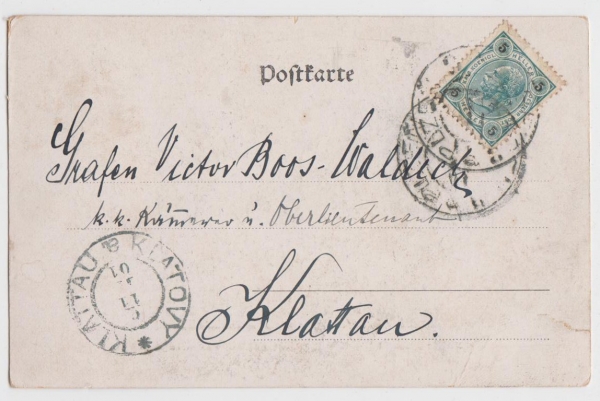 Postkarte
5 HELLER 5
5 5
Grafen Victor Boos-Waldeck
k. k. Kämmerer u. Oberlieutenant
Klattau.
KLATTAU * KLATOVY
01
11